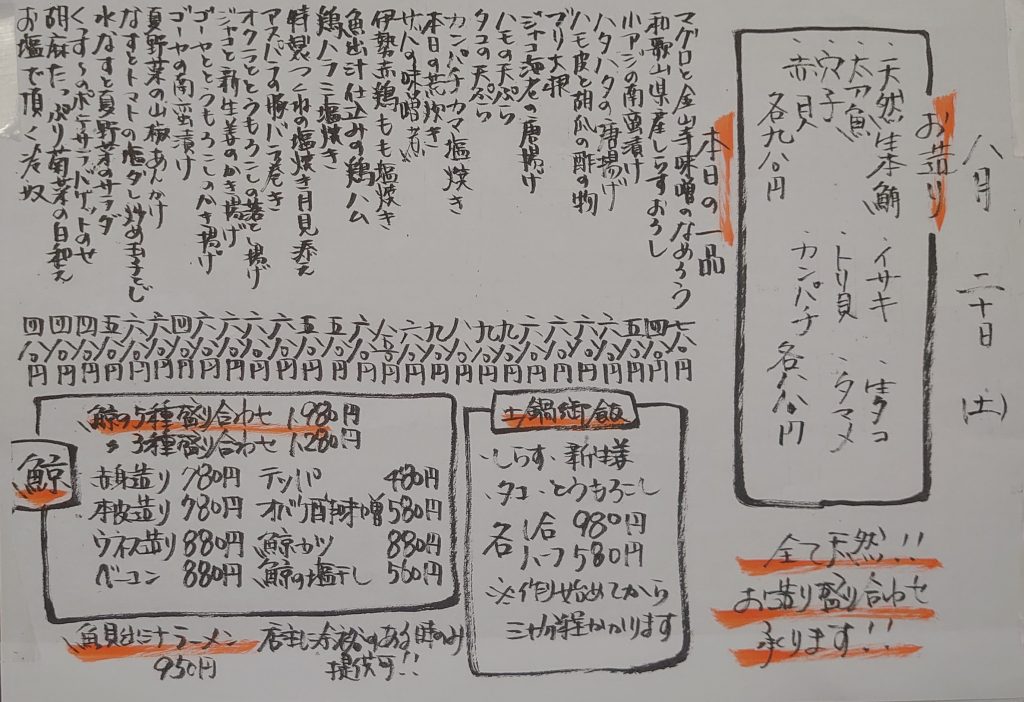 八月 二十日 (土)
お造り
天然生本鮪 イサキ 生タコ
太刀魚 トリ貝 シタマメ
穴子 カンパチ 各八八〇円
赤貝
各九八〇円
全て天然!!
お造り盛り合わせ
承ります!!
本日の一品
マグロと金山寺味噌のなめろう 七八〇円
和歌山県産しらすおろし 四八〇円
小アジの南蛮漬け 五八〇円
ハタハタの唐揚げ 六八〇円
ハモ皮と胡瓜の酢の物 六八〇円
ブリ大根
ジャコ海老の唐揚げ 六八〇円
ハモの天ぷら 九八〇円
タコの天ぷら 九八〇円
カンパチカマ塩焼き 八八〇円
本日の荒炊き 九八〇円
サバの味噌煮 六八〇円
伊勢赤鶏もも塩焼き
魚出汁仕込みの鶏ハム 六八〇円
鶏ハラミ塩焼き 五八〇円
特製つくねの塩焼き月見添え 五八〇円
アスパラの豚バラ巻き 六八〇円
オクラととうもろこしの落とし揚げ 六八〇円
ジャコと新生姜のかき揚げ 六八〇円
ゴーヤととうもろこしのかき揚げ 六八〇円
ゴーヤの南蛮漬け 四八〇円
夏野菜の山椒あんかけ 六八〇円
なすとトマトの塩ダレ炒め玉子とじ 六八〇円
水なすと夏野菜のサラダ 五八〇円
くんすけのポテサラバゲットのせ 四八〇円
胡麻たっぷり菊菜の白和え 四八〇円
お塩で頂く冷奴 四八〇円
土鍋御飯
・しらす・新生姜
・タコ・とうもろこし
各 1合 980円
ハーフ 580円
※作り始めてから
三十分程かかります
鯨
鯨の5種盛り合わせ 1,980円
〃 3種盛り合わせ 1,280円
赤身造り 780円 テッパ 480円
本皮造り 780円 オバケ酢味噌 580円
ウネス造り 880円 鯨カツ 880円
ベーコン 880円 鯨の塩干し 580円
魚貝出汁ラーメン 店主に余裕のある時のみ
950円 提供可!!